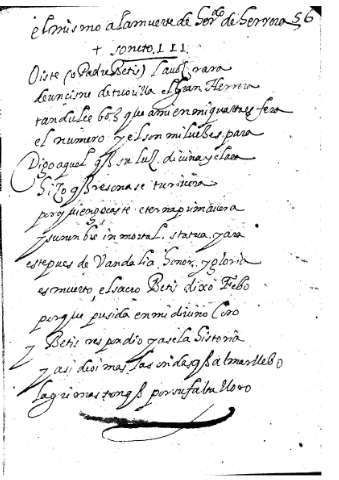 el mismo a la muerte de her^do de herrera 56
+ soneto. III.
Oiste (o Padre Betis) la voz rara
de un cisne de tu orilla el gran Herrera
tan dulce boz que ami en mi quarta esfera
el numero y el son mil vezes para
Digo aquel q̃ su luz. divina y clara
hizo q̃ resonase tu rivera
por quien gozaste eterna primavera
y su nonbre inmortal. statua y ara
este pues de Vandalia honor, y gloria
es muerto, el sacro Betis dixo Febo
porque presida en mi divino Coro
y Betis respondio ya se la historia
y asi dioi mas las ondas q̃ al mar llebo
lagrimas son q̃ por su falta lloro